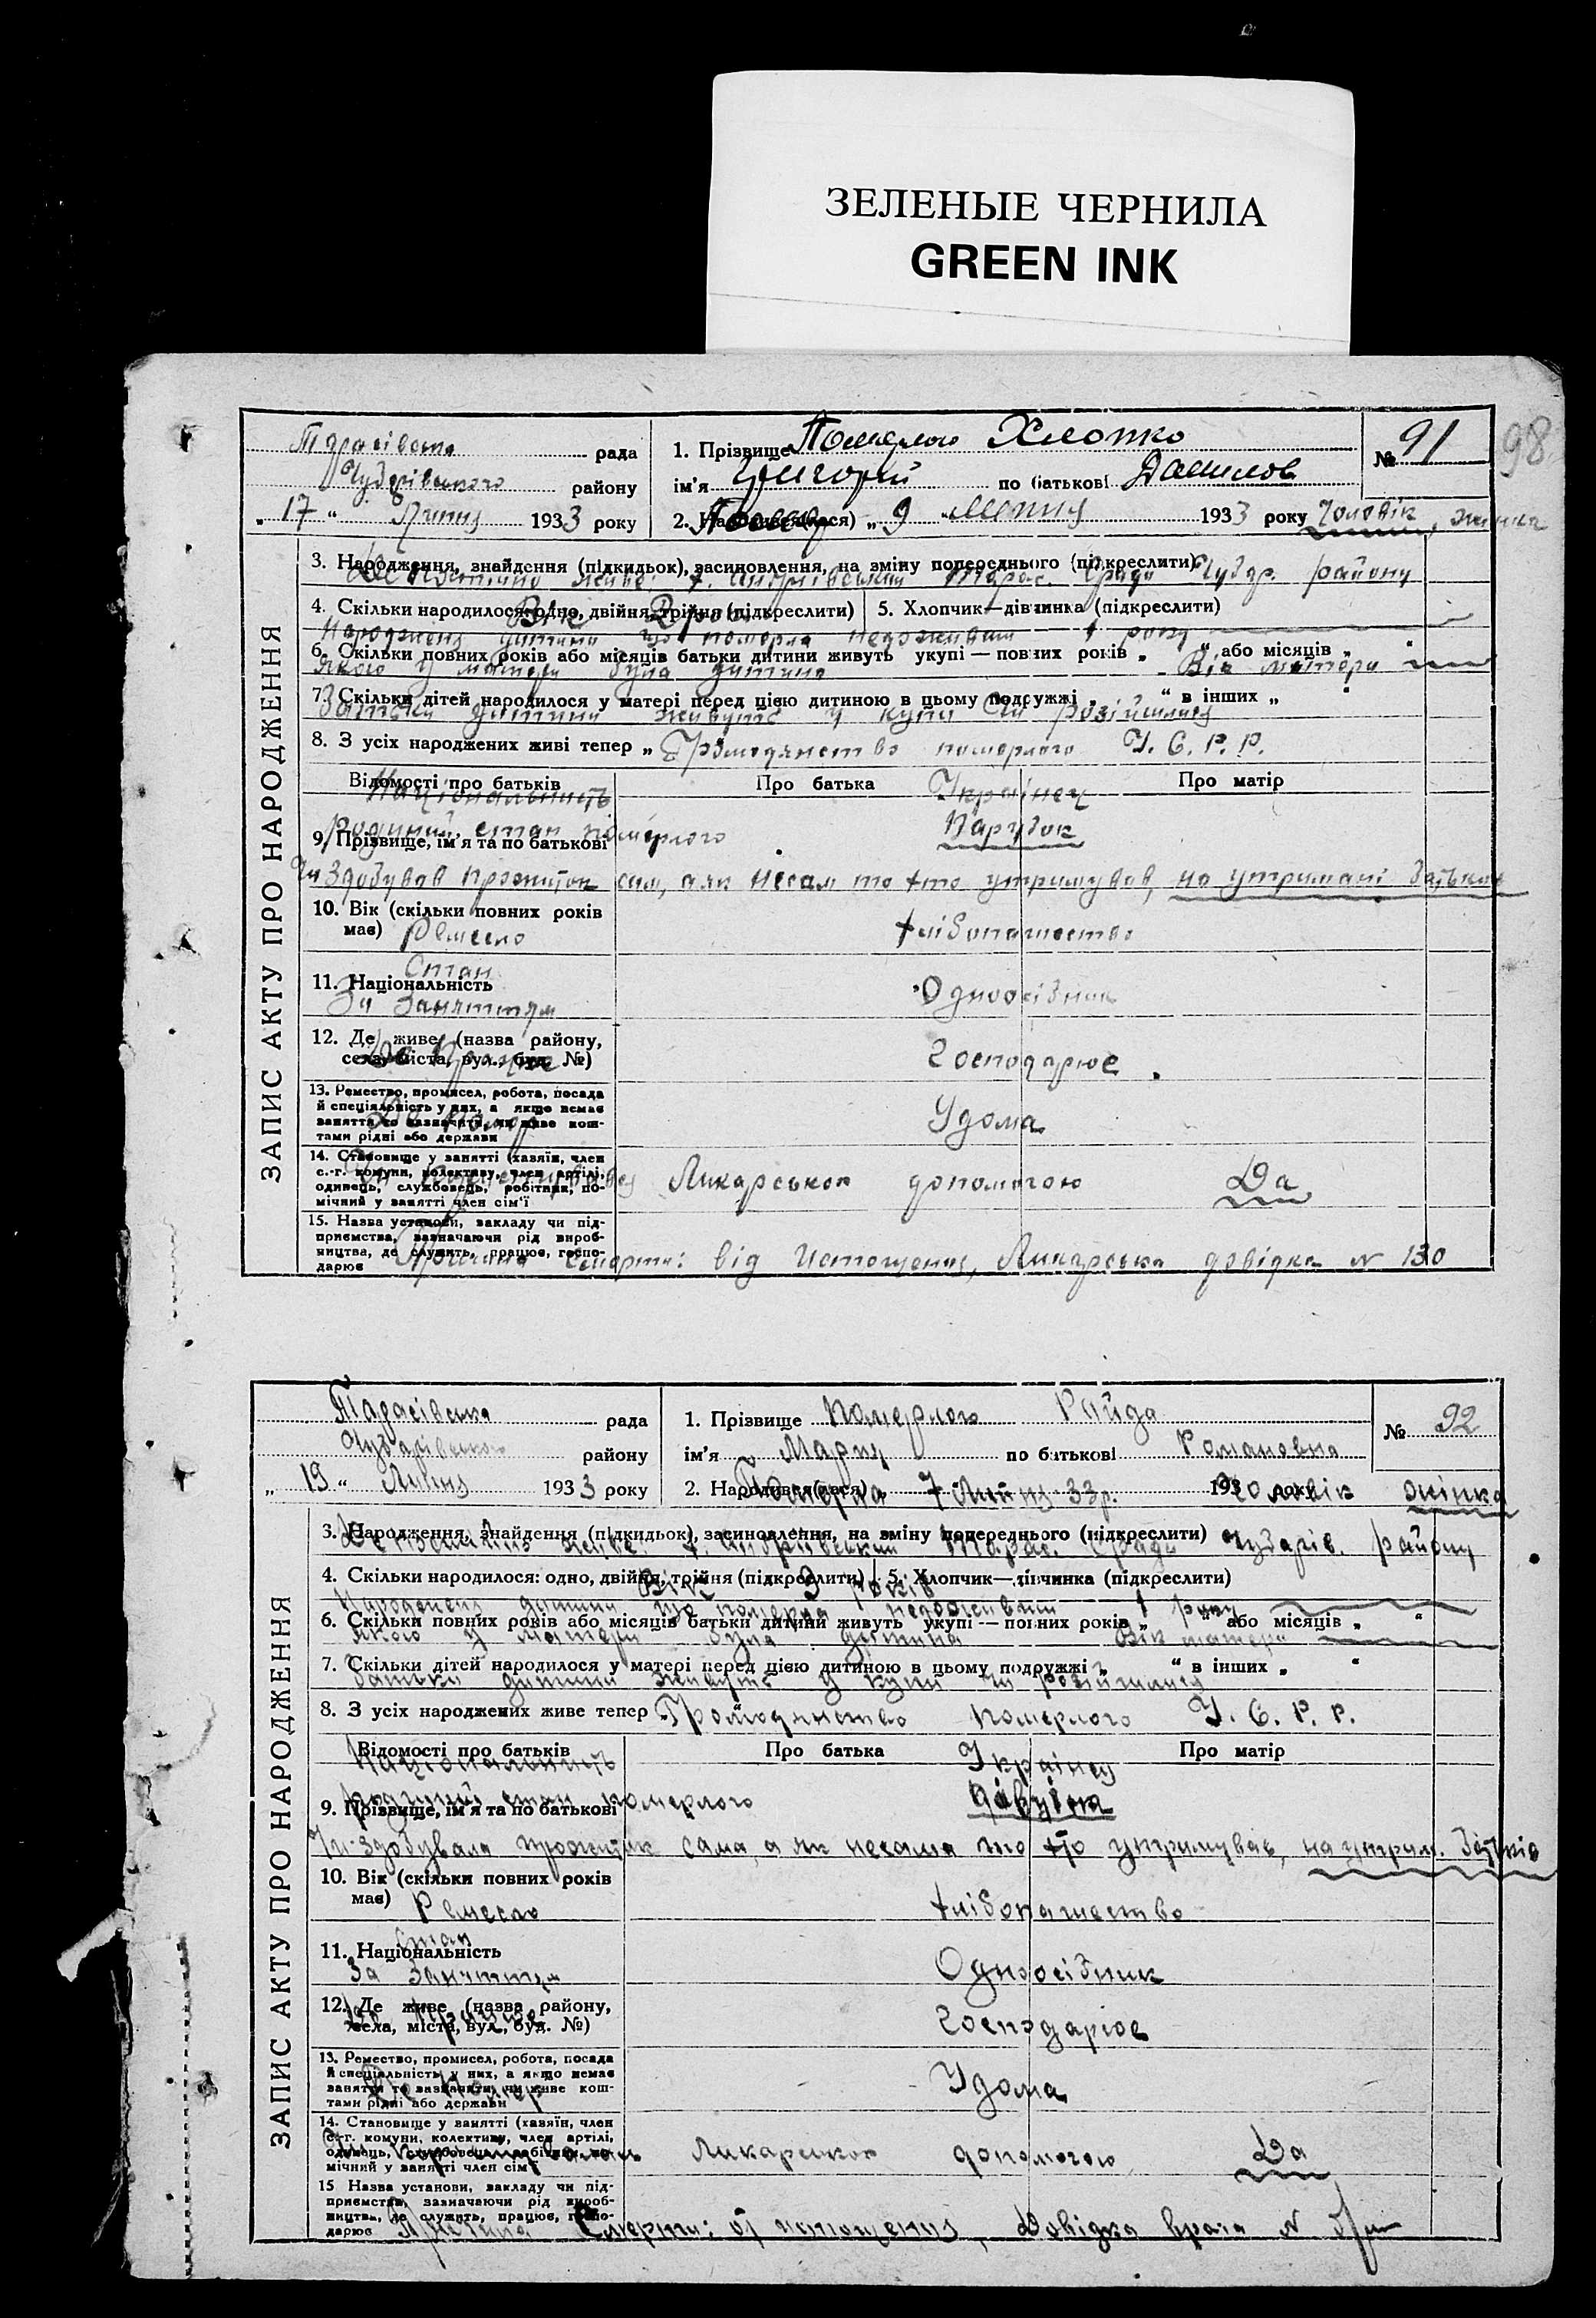 ЗЕЛЕНЫЕ ЧЕРНИЛА
GREEN INK
98
ЗАПИС АКТУ ПРО НАРОДЖЕННЯ
рада
1. Прізвище Померлого Хмопко
№ 91
району
ім'я Григорій по батькові Данилов
„17“ Липня 1933 року
2. „9“ Липня 1933 року Чоловік, жинка
3. Народження, знайдення (підкидьок), засиновлення, на зміну попереднього (підкреслити)
району
4. Скільки народилося: одно, двійня, трійня (підкреслити)
5. Хлопчик—дівчинка (підкреслити)
Народженя дитини що померла недоживши 1 року
6. Скільки повних років або місяців батьки дитини живуть укупі — повних років „ “ або місяців „ “
якою у матери була дитина Вік матери
7. Скільки дітей народилося у матері перед цією дитиною в цьому подружжі „ “ в інших „ “
Батьки дитини живуть у купи чи розійшлися
8. З усіх народжених живі тепер „ Громодянство померлого У. С. Р. Р.
Відомості про батьків
Про батька
Про матір
Національність Українец
родиний стан померлого Парубок
9. Прізвище, ім'я та по батькові
Чи здобував прожиток сам, а як несам то хто утримував, на утримані батьков
10. Вік (скільки повних років має)
Ремесло хлібопашество
Стан
11. Національність
За Заняттям Одноосібник
12. Де живе (назва району, села, міста, вул., буд. №)
Де Працює Господарює
13. Ремество, промисел, робота, посада й спеціяльність у них, а якщо немає заняття то зазначити, чи живе коштами рідні або держави
Де помер Удома
14. Становище у занятті (хазяїн, член с.-г. комуни, колективу, член артілі, одинець, службовець, робітник, помічний у занятті член сім'ї
Ликарською допомогою Да
15. Назва установи, закладу чи підприємства, зазначаючи рід виробництва, де служить, працює, господарює
Причина Смерти: від Истощения, Ликарська довідка N 130
ЗАПИС АКТУ ПРО НАРОДЖЕННЯ
Тарасівська рада
1. Прізвище Померлого Гайда
№ 92
району
ім'я Мария по батькові Романовна
„19“ Липня 1933 року
2. Народився(лася) Померла 7 Липня 33р. 193 року Чоловік жінка
3. Народження, знайдення (підкидьок), засиновлення, на зміну попереднього (підкреслити)
району
4. Скільки народилося: одно, двійня, трійня (підкреслити)
5. Хлопчик—дівчинка (підкреслити)
Вік 9 років
Народженя дитини що померла недоживши 1 року
6. Скільки повних років або місяців батьки дитини живуть укупі — повних років „ “ або місяців „ “
якою у матери була дитина Вік матери
7. Скільки дітей народилося у матері перед цією дитиною в цьому подружжі „ “ в інших „ “
Батьки дитини живуть у купи чи розійшлися
8. З усіх народжених живе тепер „ Громодянство померлого У. С. Р. Р.
Відомості про батьків
Про батька
Про матір
Національність
родиний стан померлого дівчина
9. Прізвище, ім'я та по батькові
Чи здобувала прожиток сама, а як несама то хто утримував, на утрим. Батьків
10. Вік (скільки повних років має)
Ремесло хлібопашество
Стан
11. Національність
За Заняттям Одноосібник
12. Де живе (назва району, села, міста, вул., буд. №)
Де Працює Господарює
13. Ремество, промисел, робота, посада й спеціяльність у них, а якщо немає заняття то зазначити, чи живе коштами рідні або держави
Де помер Удома
14. Становище у занятті (хазяїн, член с.-г. комуни, колективу, член артілі, одинець, службовець, робітник, помічний у занятті член сім'ї
допомогою Да
15 Назва установи, закладу чи підприємства, зазначаючи рід виробництва, де служить, працює, господарює
Причина Смерти: от истощения, Довідка врача N